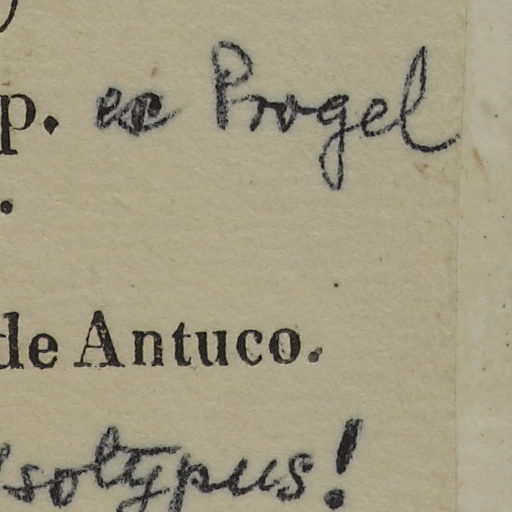 p. ex Progel
.
de Antuco.
Isotypus!